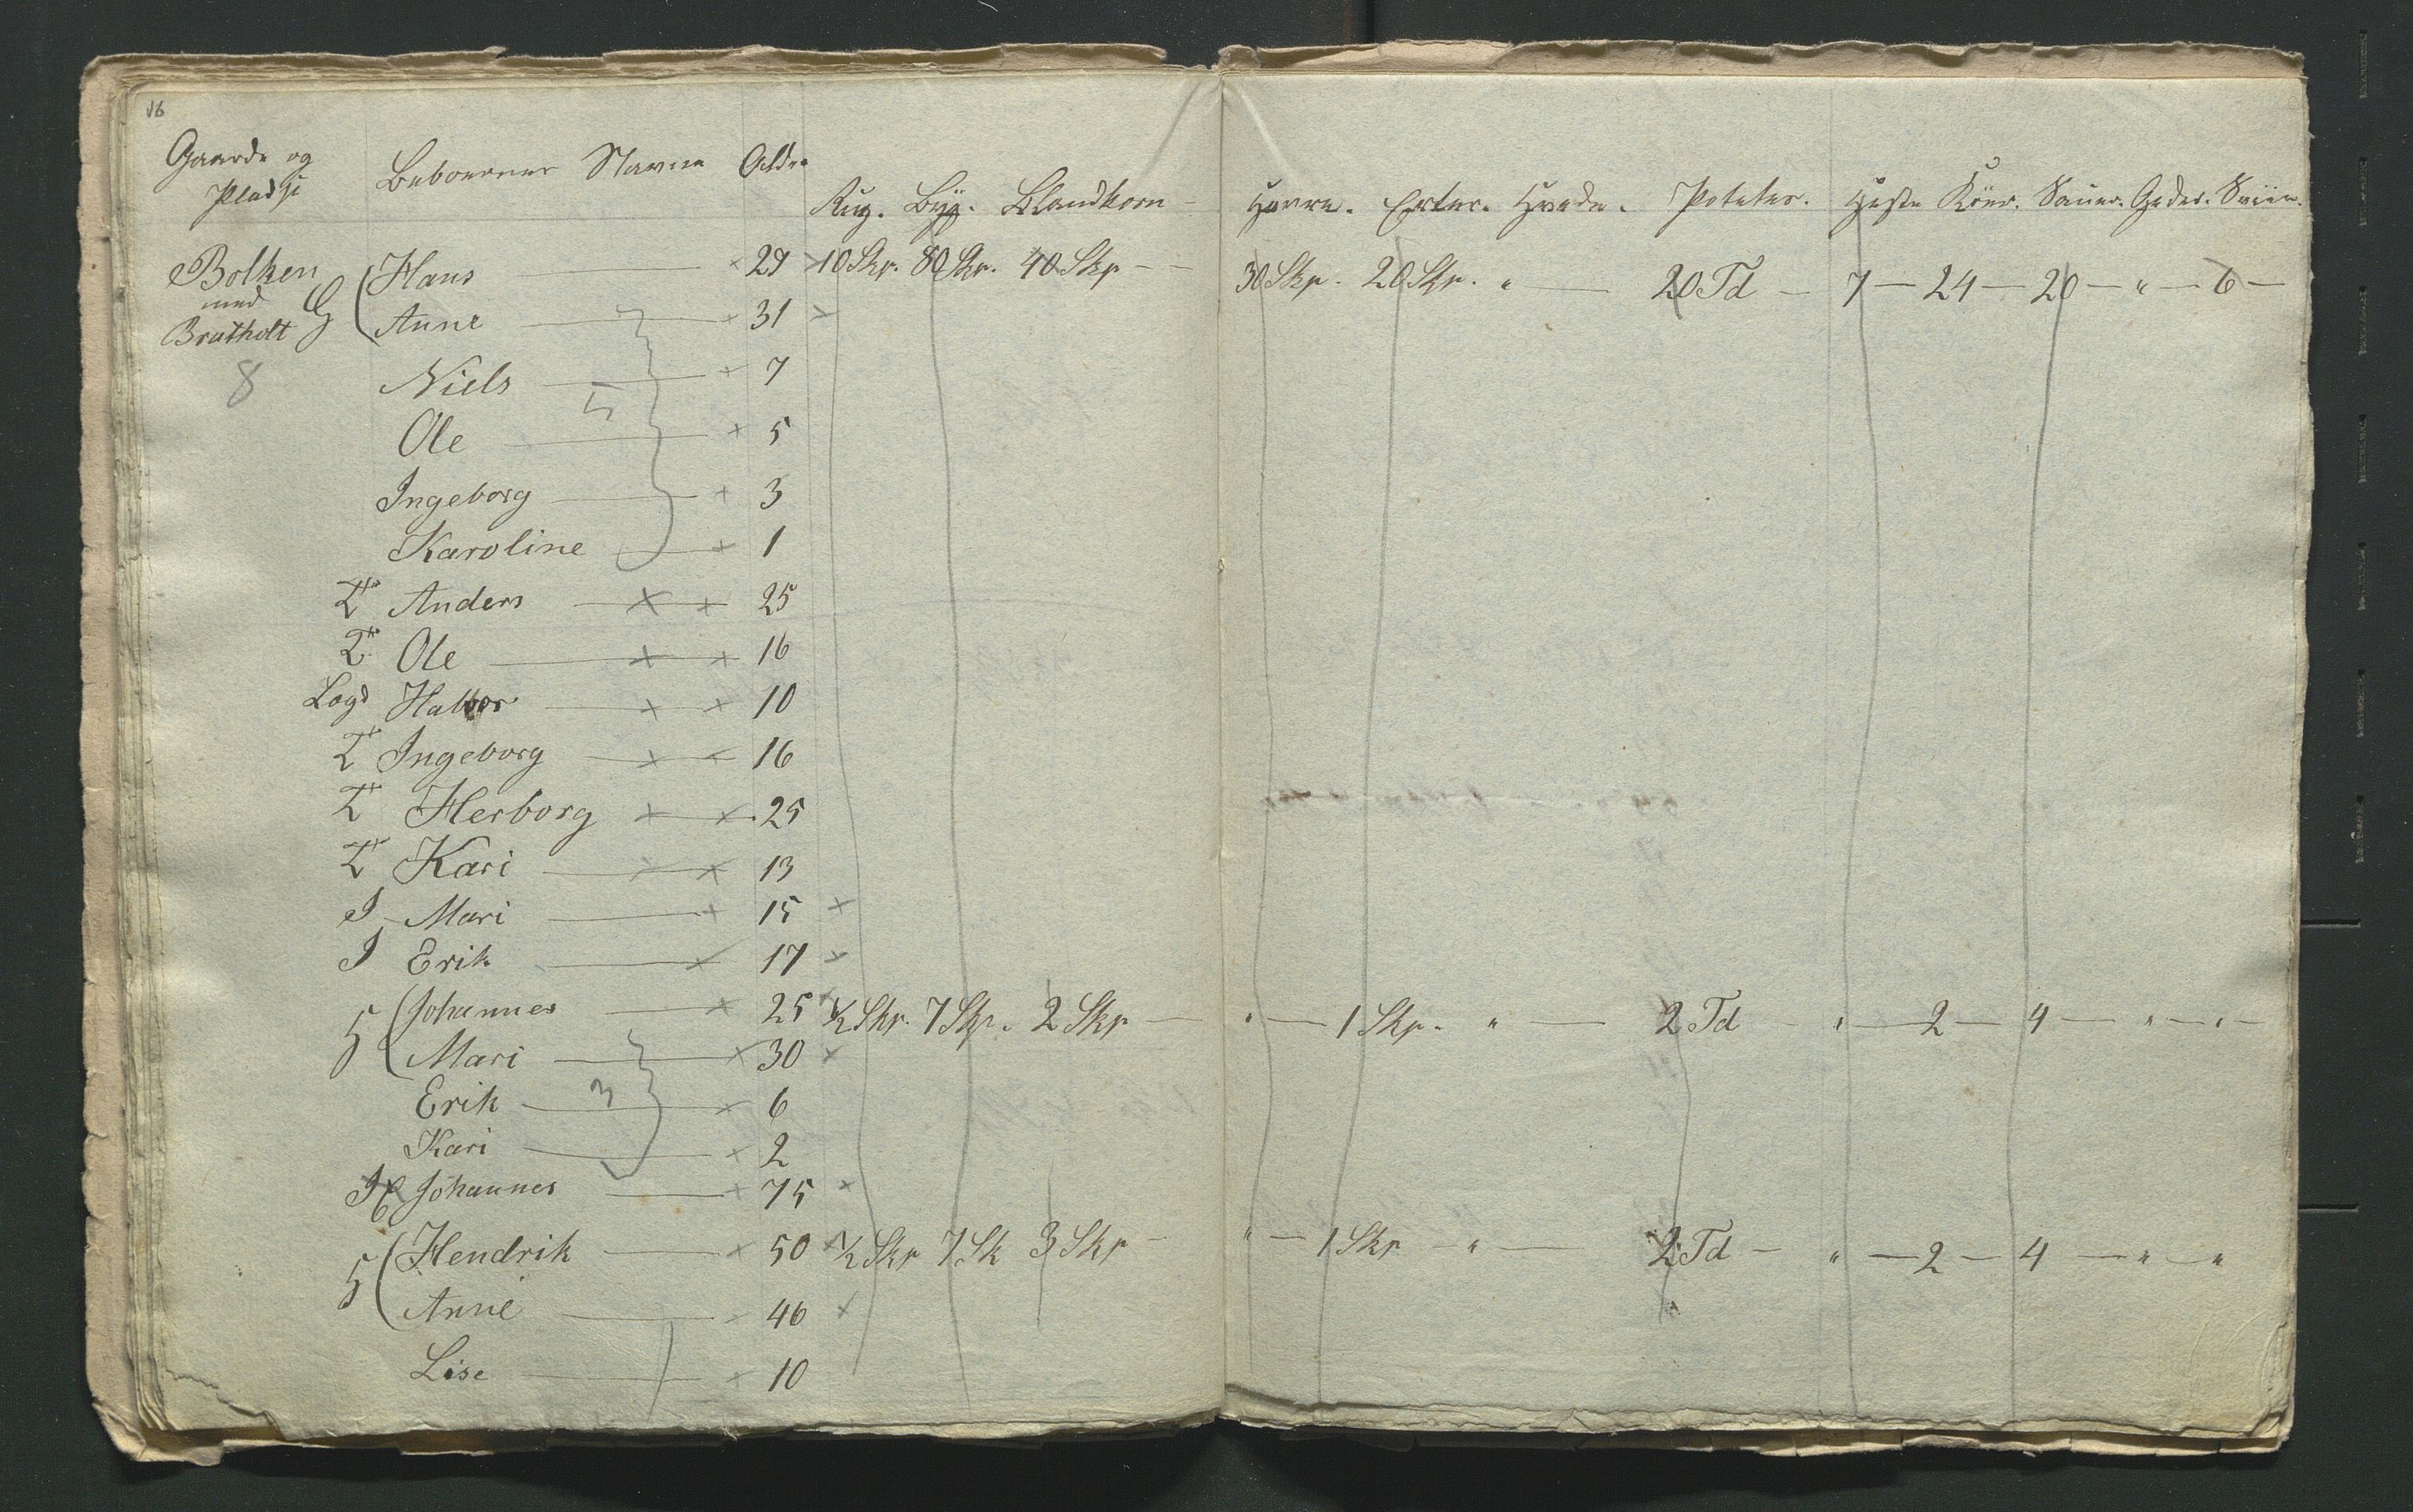 16
Gaarde og Pladse Beboernes Navne Alder Rug. Byg. Blandkorn - Havre. Erter. Hvede. Poteter. Heste Köer. Sauer. Geder. Sviin.
Bolken med Bratholt G Hans 29 10 Skp. 80 Skp. 40 Skp - - 30 Skp. 20 Skp. " — 20 Td — 7 — 24 — 20 — " — 6 —
Anne 31
8 Niels 7
5
Ole 5
Ingeborg 3
Karoline 1
T Anders 25
T Ole 16
Lægd Halvor 10
T Ingeborg 16
T Herborg 25
T Kari 13
I Mari 15
I Erik 17
H Johannes 25 ½ Skp. 7 Skp. 2 Skp — " — 1 Skp. " — 2 Td - " — 2 — 4 — " — " —
Mari 30
Erik 3 6
Kari 2
Johannes 75
H Hendrik 50 ½ Skp 7 Sk 3 Skp - " — 1 Skp - " — 2 Td — " — 2 — 4 — " — "
Anne 46
Lise 10